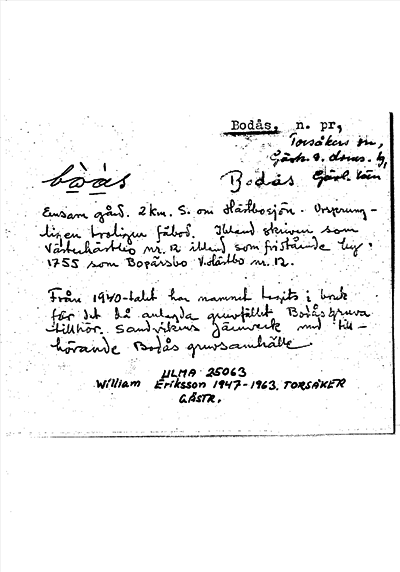 Bodås, n. pr,
Torsåkers sn,
Gästr. ö. doms. hg,
bòàs Bodås Gävl. län
Ensam gård. 2 km. S. om Hästbosjön. Ursprung-
ligen troligen fäbod. Ibland skriven som
Västerhästbo nr. 12 ibland som fristående lag.
1755 som Bopärsbo V.Hästbo nr. 12.
Från 1940-talet har namnet tagits i bruk
för det då anlagda gruvfältet Bodåsgruva
tillhör. Sandvikens Jämverk med till-
hörande Bodås gruvsamhälle.
ULMA 25063
William Eriksson 1947-1963. TORSÅKER
GÄSTR.